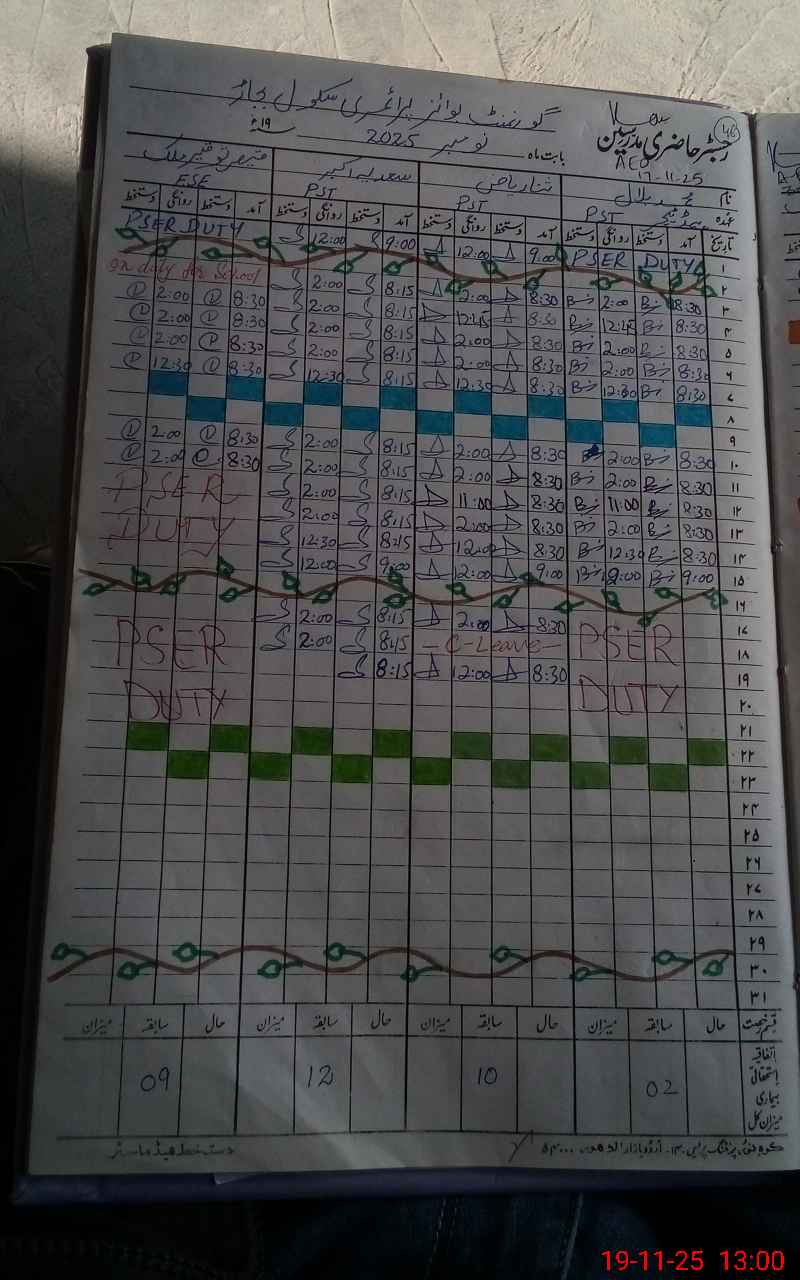 گورنمنٹ بوائز پرائمری سکول
46
رجسٹر حاضری مدرسین
بابت ماہ نومبر 2025 ۱۹ء
AEO
17-11-25
نام محمد بلال ثناء ریاض سعدیہ اکبر
عہدہ PST PST PST ESE
تاریخ آمد دستخط روانگی دستخط آمد دستخط روانگی دستخط آمد دستخط روانگی دستخط آمد دستخط روانگی دستخط
۱ PSER DUTY 9:00 12:00 9:00 12:00 PSER DUTY
۲ on duty for School
۳ 8:30 2:00 8:30 2:00 8:15 2:00 8:30 2:00
۴ 8:30 12:45 8:30 12:45 8:15 2:00 8:30 2:00
۵ 8:30 2:00 8:30 2:00 8:15 2:00 8:30 2:00
۶ 8:30 2:00 8:30 2:00 8:15 2:00 8:30 12:30
۷ 8:30 12:30 8:30 12:30 8:15 12:30
۸
۹
۱۰ 8:30 2:00 8:30 2:00 8:15 2:00 8:30 2:00
۱۱ 8:30 2:00 8:30 2:00 8:15 2:00 8:30 2:00
۱۲ 8:30 11:00 8:30 11:00 8:15 2:00 PSER
۱۳ 8:30 2:00 8:30 2:00 8:15 2:00 DUTY
۱۴ 8:30 12:30 8:30 8:15 12:30
۱۵ 9:00 9:00 12:00 9:00 12:00
۱۶
8:30 2:00 8:15 2:00
۱۸ PSER C-Leave 8:15 2:00 PSER
۱۹ 8:30 12:00 8:15
۲۰ DUTY DUTY
۲۱
۲۲
۲۳
۲۴
۲۵
۲۶
۲۷
۲۸
۲۹
۳۰
۳۱
قسم رخصت حال سابقہ میزان حال سابقہ میزان حال سابقہ میزان حال سابقہ میزان
اتفاقیہ
استحقاقی 02 10 12 09
بیماری
میزان کل
دستخط ہیڈ ماسٹر
19-11-25 13:00